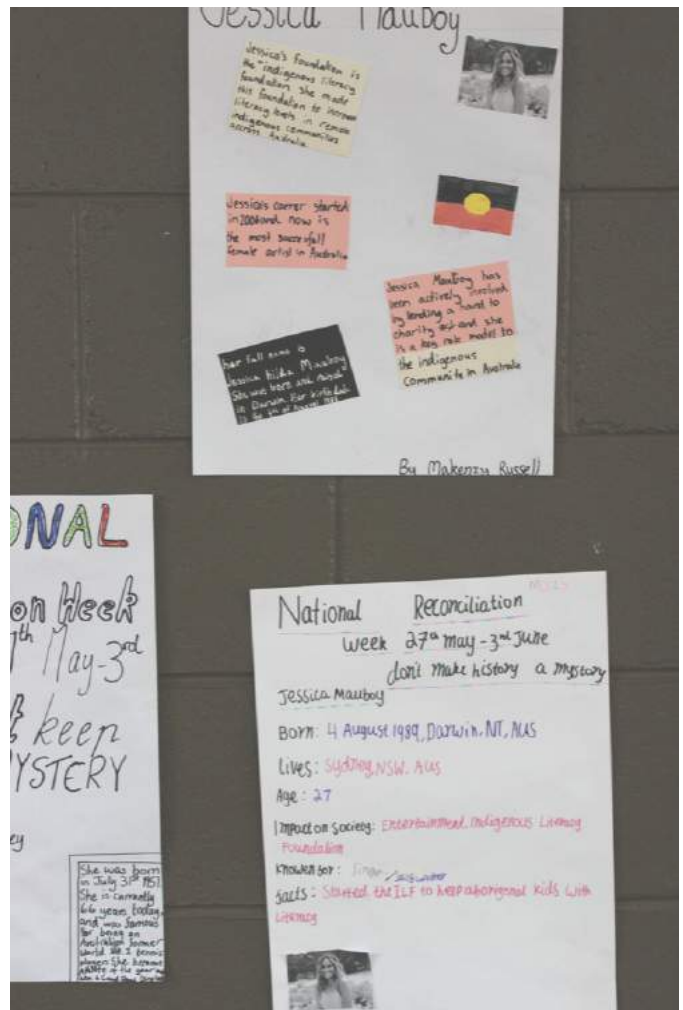 Jessica Mauboy
Jessica's foundation is
the "indigenous literacy
foundation she made
this foundation to increase
literacy levels in remote
indigenous communities
across Australia
Jessica's carrer started
in 2004 and now is
the most successfull
female artist in Australia
Jessica Mautboy has
been actively involved
by lending a hand to
charity and she
is a key role model to
the indigenous
Communite in Australia
her full name is
Jessica hilda Mauboy
She was born and raised
in Darwin. Her birthdate
is the 4th of August 1989
By Makenzy Russell
ONAL
on Week
th May-3rd
keep
YSTERY
ey
She was born
in July 31st 1951.
She is currently
66 years today,
and was famous
for being an
Australian former
World No. 1 tennis
player. She became
of the year
National Reconciliation
week 27th may - 3rd June
don't make history a mystory
Jessica Mauboy
Born: 4 August 1989, Darwin, NT, AUS
Lives: Sydney, NSW, AUS
Age: 27
Impact on Society: Entertainment, Indigenous Literacy
Foundation
Knowen for: Singer / songwriter
facts: Started the ILF to help aboriginal kids with
Literacy